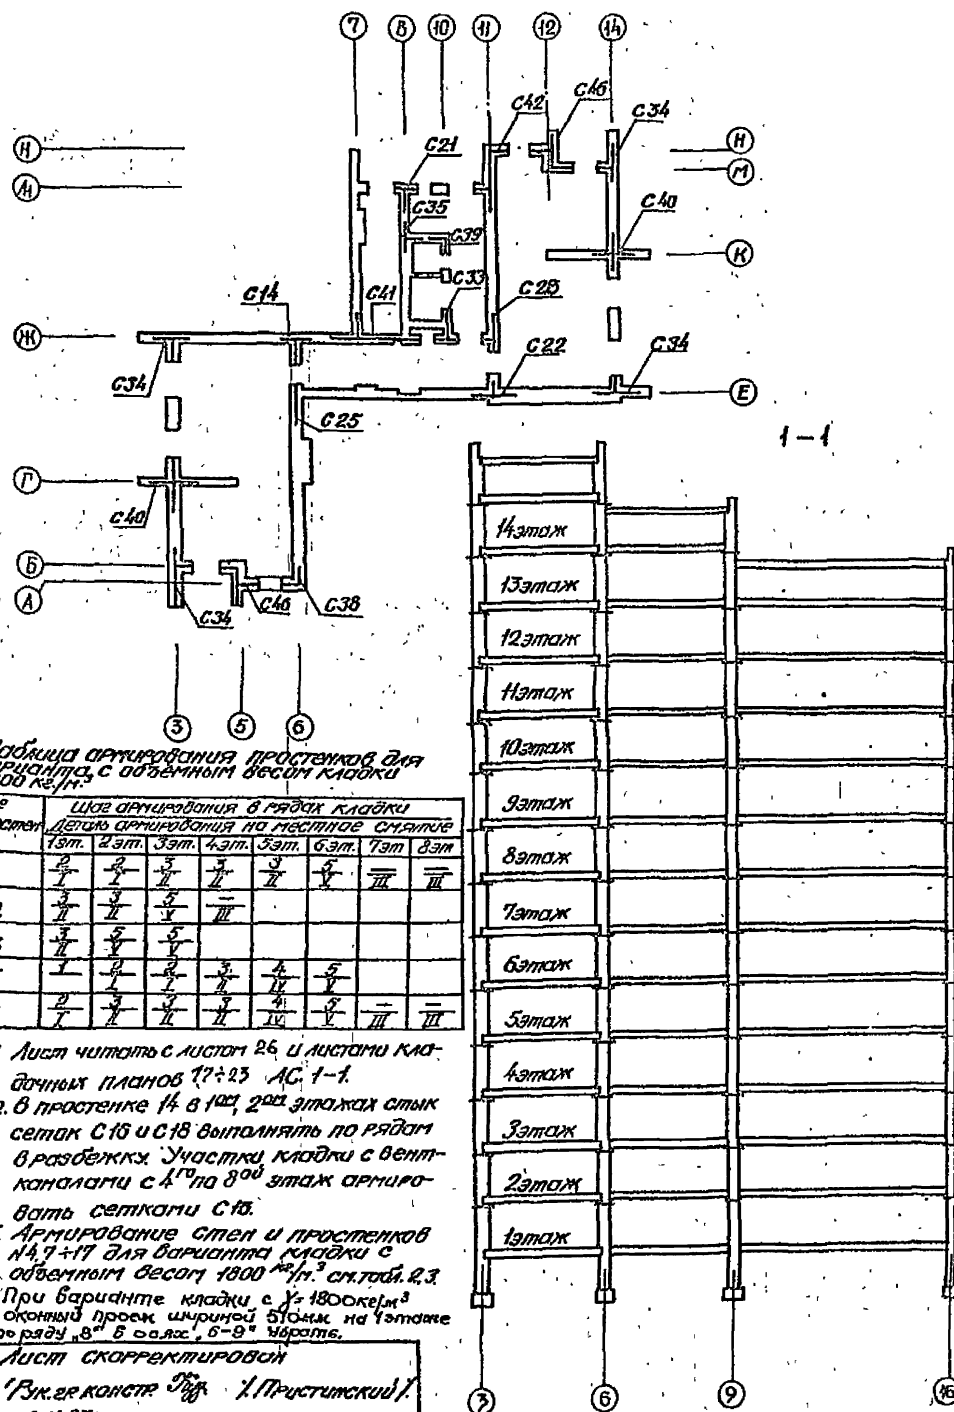 7 8 10 11 12 14
С46
С42
С34
Н Н
С21
М
С35
С40
С39
К
С33
С14 С41 С28
Ж
С22 С34
С34
Е
С25
1-1
Г
С40
14этаж
Б
13этаж
А
С46 С38
С34
12этаж
11этаж
3 5 6
10этаж
9этаж
8этаж
7этаж
6этаж
5этаж
4этаж
3этаж
2этаж
1этаж
3 6 9 16
Таблица армирования простенков для
варианта с объемным весом кладки
Шаг армирования в рядах кладки
Деталь армирования на местное смятие
1эт. 2эт. 3эт. 4эт. 5эт. 6эт. 7эт 8эт
2 2 3 3 3 5 — —
I I II II II V III III
3 3 5 —
II II V III
3 5 5
II V V
1 2 2 3 4 5
I I II IV V
2 3 3 3 4 5 — —
I II II II IV V III III
Лист читать с листом 26 и листами кла-
дочных планов 17÷23 АС 1-1.
2. В простенке 14 в 1ом, 2ом этажах стык
сеток С16 и С18 выполнять по рядам
в разбежку. Участки кладки с вент-
каналами с 4го по 8ой этаж армиро-
вать сетками
Армирование стен и простенков
N4,7÷17 для варианта кладки с
объемным весом 1800 кг/м.³ см. табл. 2.3.
При варианте кладки с γ=1800кг/м³
оконный проем шириной 510мм на 1этаже
по ряду „8" в осях „6-9" убрать.
Лист скорректирован
Рук.гр констр.